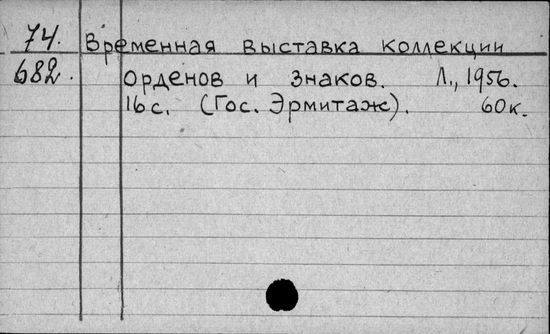 74. Временная выставка коллекции
682. орденов и знаков. Л., 1956.
16 с. (Гос. Эрмитаж). 60 к.